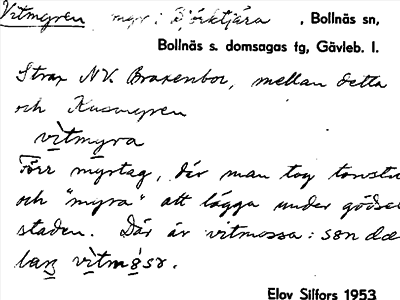 Vitmyren myr i Björktjära , Bollnäs sn,
Bollnäs s. domsagas tg, Gävleb. l.
Strax NV. Braxenbor, mellan detta
och Kusmyren
vitmyra
Förr myrtag, där man tog torvströ
och "myra" att lägga under gödsel
staden. Där är vitmossa: sen dæ